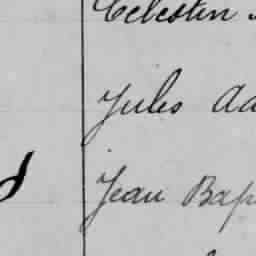 Celestin
Jules Ad
Jean Bap